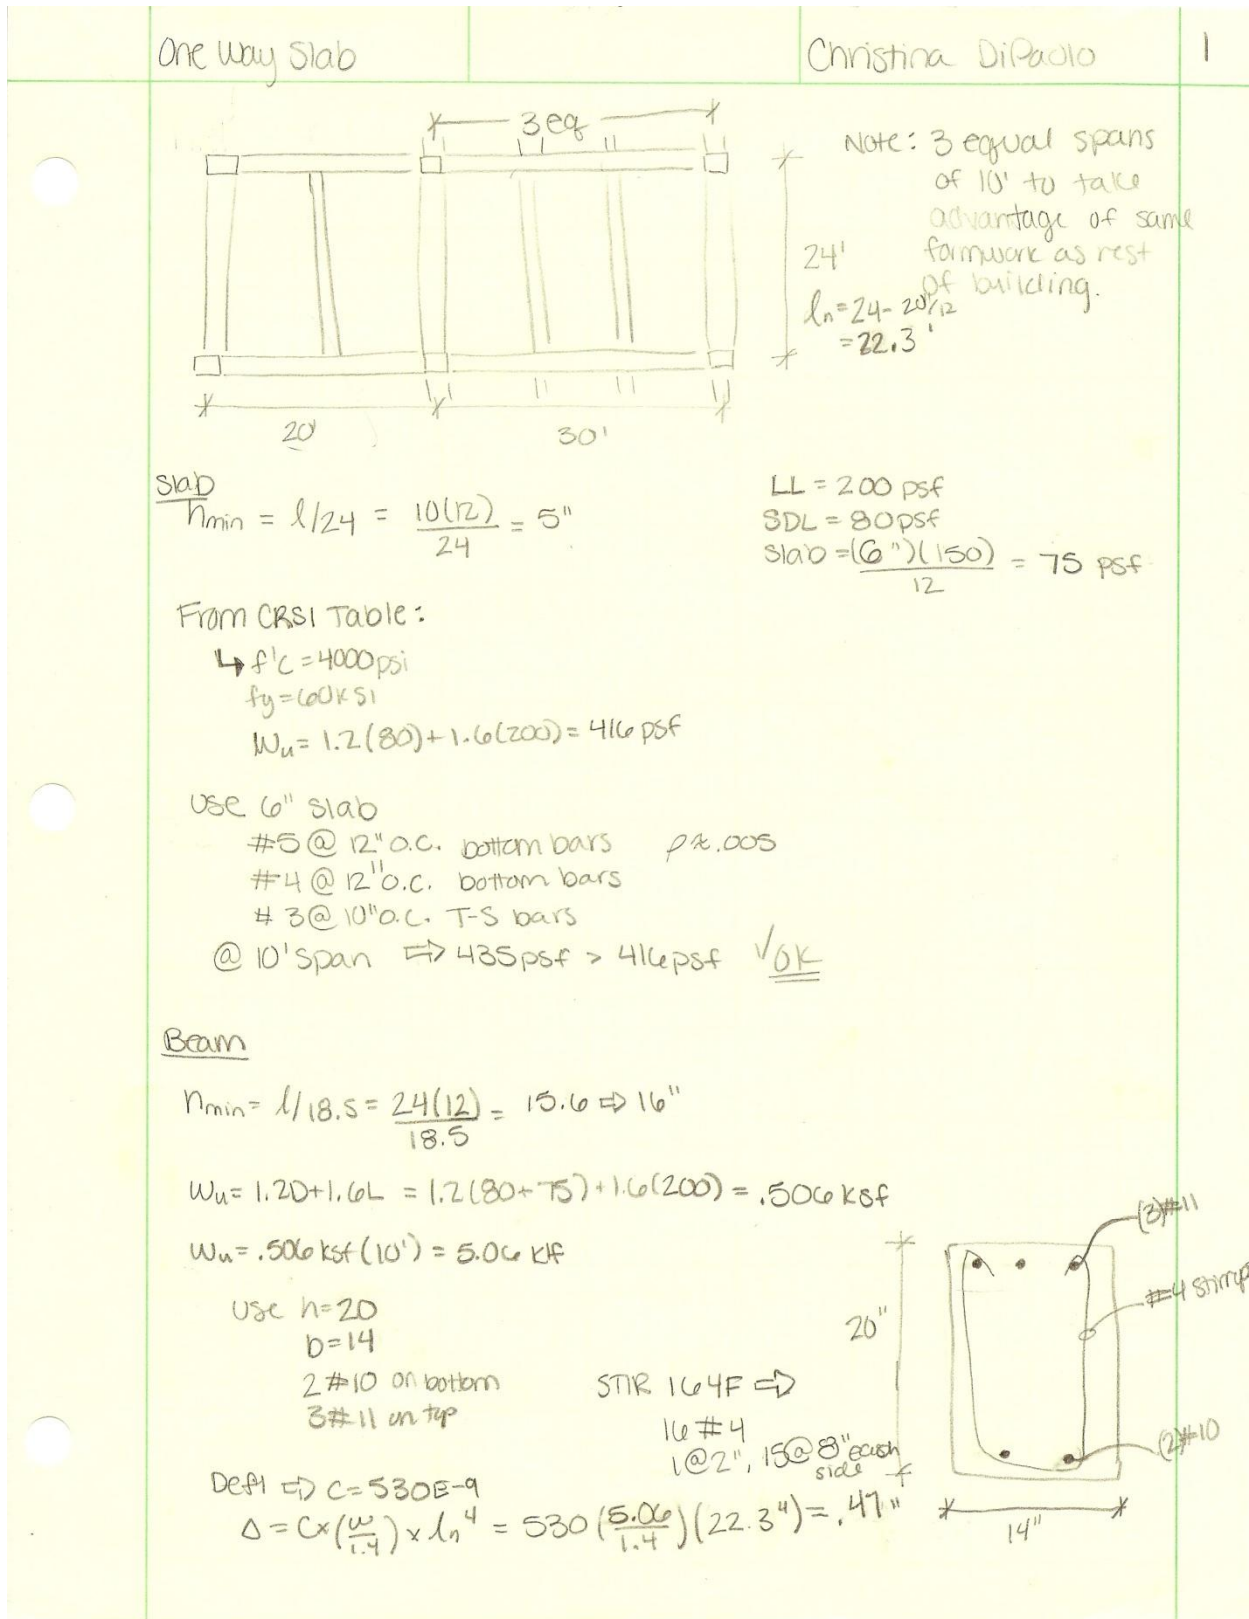 One Way Slab
Christina DiPaolo
1
3 eq
Note: 3 equal spans
of 10' to take
advantage of same
formwork as rest
of building.
24'
ln = 24 - 20"/12
= 22.3'
20'
30'
Slab
hmin = l/24 = 10(12)/24 = 5"
LL = 200 psf
SDL = 80psf
slab = (6")(150)/12 = 75 psf
From CRSI Table:
↳ f'c = 4000psi
fy = 60KSI
Wu = 1.2(80) + 1.6(200) = 416 psf
Use 6" slab
#5 @ 12" O.C. bottom bars ρ≈.005
#4 @ 12" O.C. bottom bars
#3 @ 10" O.C. T-S bars
@ 10' span ⇒ 435psf > 416psf √OK
Beam
hmin = l/18.5 = 24(12)/18.5 = 15.6 ⇒ 16"
Wu = 1.2D + 1.6L = 1.2(80+75) + 1.6(200) = .506 ksf
Wu = .506 ksf (10') = 5.06 klf
Use h=20
b=14
2 #10 on bottom
3 #11 on top
STIR 164F ⇒
16 #4
1@2", 15@8" each
side
Defl ⇒ C = 530E-9
Δ = C x (w/1.4) x ln⁴ = 530 (5.06/1.4)(22.3⁴) = .47"
(3)#11
#4 stirrups
20"
(2)#10
14"